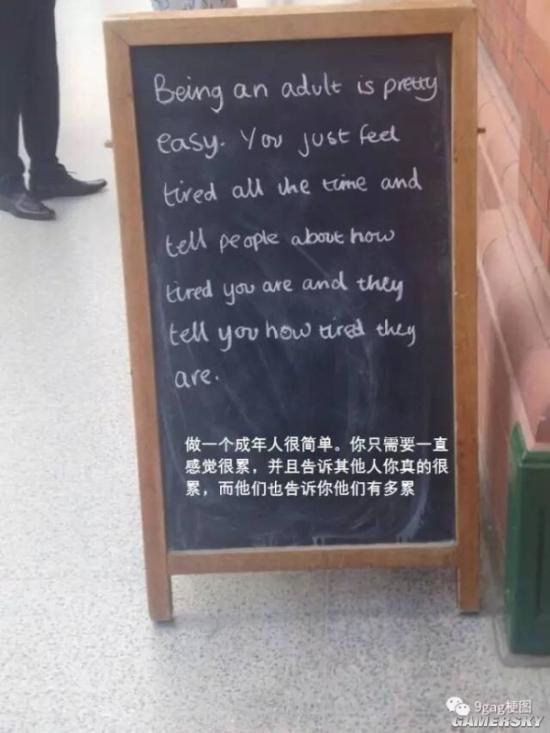 Being an adult is pretty
easy. You just feel
tired all the time and
tell people about how
tired you are and they
tell you how tired they
are.
做一个成年人很简单。你只需要一直
感觉很累，并且告诉其他人你真的很
累，而他们也告诉你他们有多累
9gag梗图
GAMERSKY